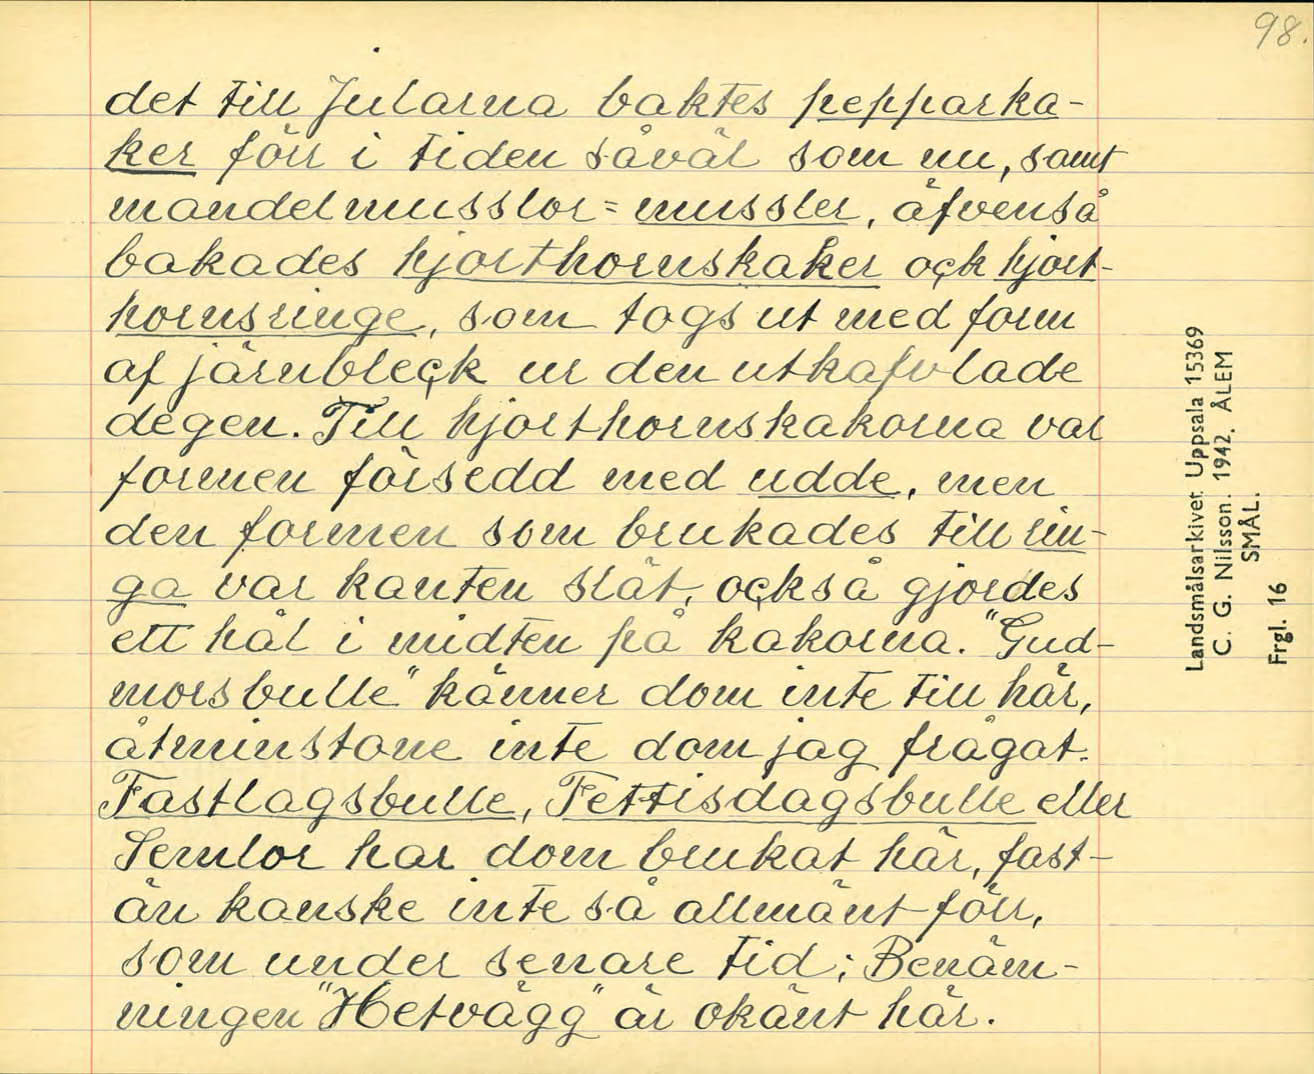 98.
det till Jularna baktes pepparka-
ker förr i tiden såväl som nu, samt
mandelmusslor = mussler, äfvenså
bakades hjorthornskaker ock hjort-
hornsringe, som togs ut med form
af järnbleck ur den utkaflade
degen. Till hjorthornskakorna var
formen försedd med udde, men
den formen som brukades till rin-
ga var kanten slät, också gjordes
ett hål i midten på kakorna. "Gud-
morsbulle" känner dom inte till här,
åtminstone inte dom jag frågat.
Fastlagsbulle, Fettisdagsbulle eller
Semlor har dom brukat här, fast-
än kanske inte så allmänt förr,
som under senare tid; Benäm-
ningen "Hetvägg" är okänt här.
Landsmålsarkivet, Uppsala 15369
C. G. Nilsson. 1942. ÅLEM
SMÅL.
Frgl. 16